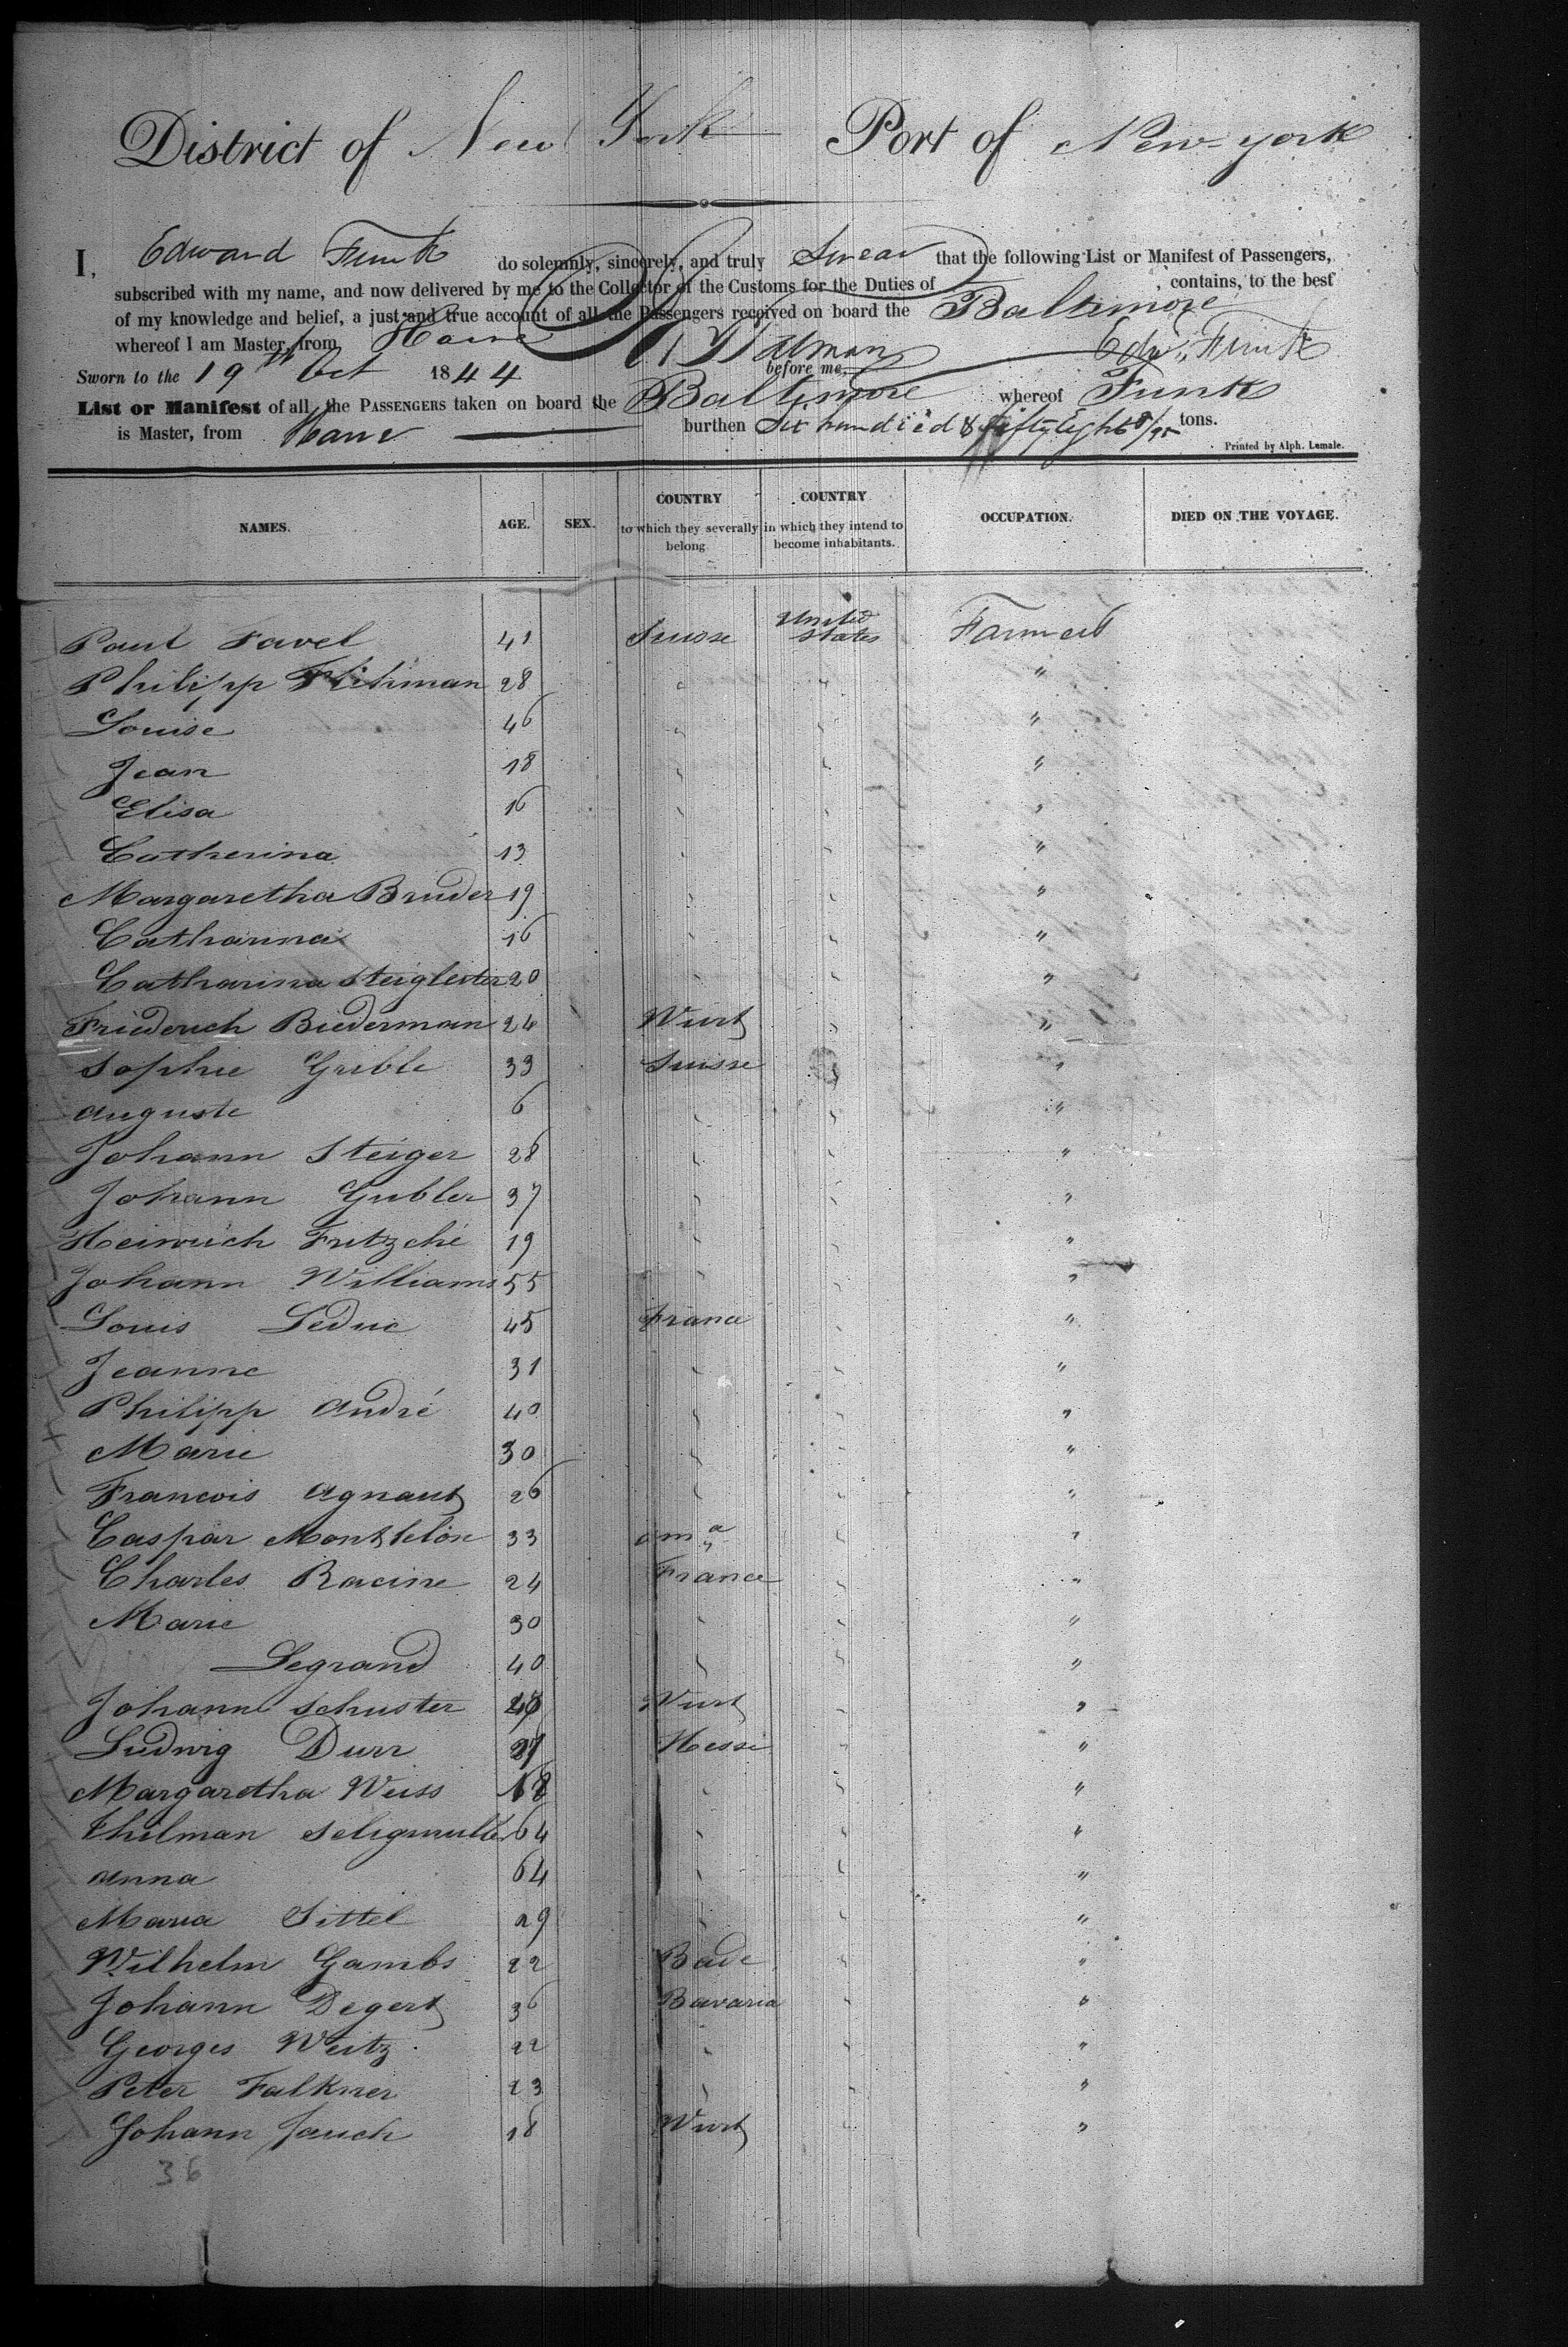 District of New York Port of New-york
I, Edward Funk do solemnly, sincerely, and truly Swear that the following List or Manifest of Passengers,
subscribed with my name, and now delivered by me to the Collector of the Customs for the Duties of , contains, to the best
of my knowledge and belief, a just and true account of all the Passengers received on board the Baltimore
whereof I am Master, from Havre
Edw. Funk
Sworn to the 19th Oct 1844 before me,
List or Manifest of all the PASSENGERS taken on board the Baltimore whereof Funk
is Master, from Havre burthen Six hundred & fifty Eight 8/95 tons.
Printed by Alph. Lemale.
NAMES. AGE. SEX. COUNTRY to which they severally belong COUNTRY in which they intend to become inhabitants. OCCUPATION. DIED ON THE VOYAGE.
Paul Favel 41 Suisse United States Farmers
Philipp 28 " " "
Louise 46 " " "
Jean 18 " " "
Elisa 16 " " "
Catherina 13 " " "
Margaretha Bruder 19 " " "
Catharina 16 " " "
Catharina 20 " " "
Friederich Biederman 24 Wurt " "
Sophie Grible 33 Suisse " "
Auguste 6 " " "
Johann Steiger 28 " " "
Johann Gubler 37 " " "
Heinrich Fritzché 19 " " "
Johann Williams 55 " " "
Louis Leduc 45 France " "
Jeanne 31 " " "
Philipp André 40 " " "
Marie 30 " " "
Francois Agnaut 26 " " "
Caspar 33 " "
Charles Racine 24 France " "
Marie 30 " " "
Legrand 40 " " "
Johann Schuster Wurt " "
Ludwig Durr Hesse " "
Margaretha Weiss 18 " " "
Thilman 64 " " "
Anna 64 " " "
Maria Sittel 29 " " "
Wilhelm Gambs 22 Bade " "
Johann Degert 36 Bavaria " "
Georges Weitz 22 " " "
Peter Falkner 23 " " "
Johann Jauch 18 Wurt " "
36